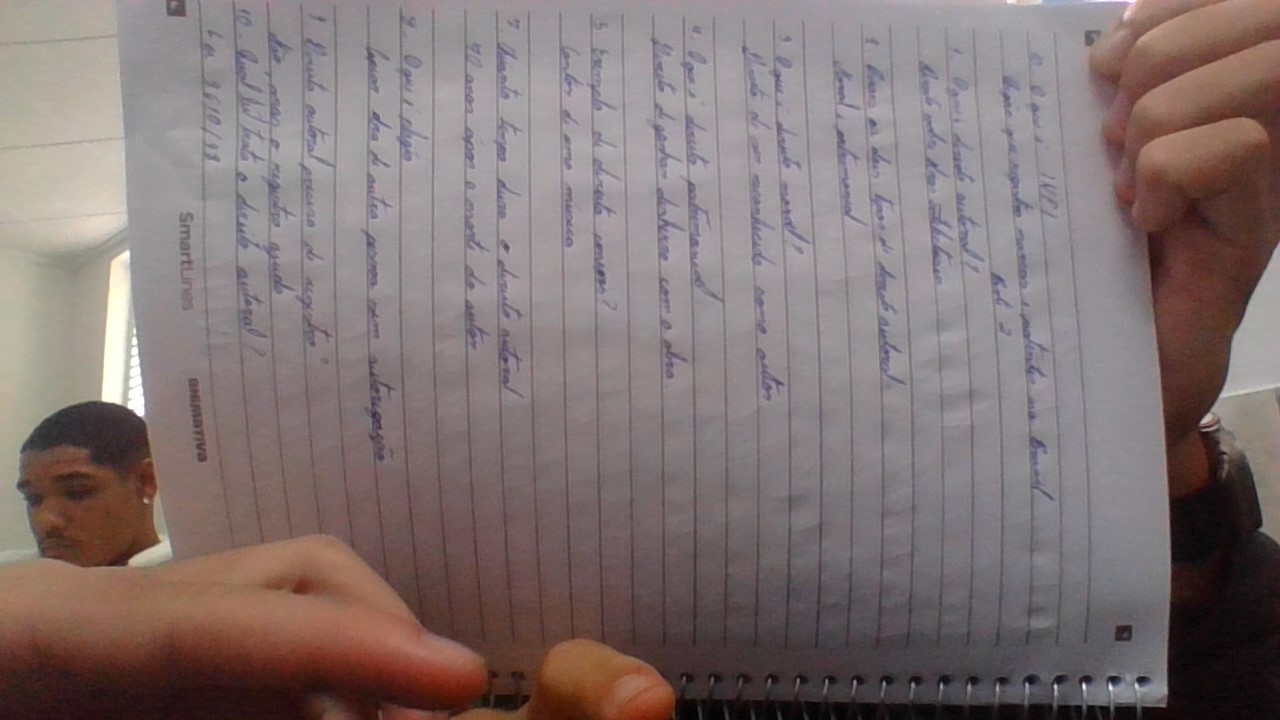 10. O que é INPI
Órgão que registra marcas e patentes no Brasil
Part 2
1. O que é direito autoral?
Direito sobre obra intelectual
2. Quais os dois tipos de direito autoral?
Moral e patrimonial
3 O que é direito moral?
Direito de ser reconhecido como autor
4. O que é direito patrimonial
Direito de ganhar dinheiro com a obra
5 Exemplo de direito conexo?
Cantor de uma musica
7 Quanto tempo dura o direito autoral
70 anos após a morte do autor
O que é plágio
Copiar obra de outra pessoa sem autorização
9 Direito autoral precisa de registro?
Não, mas o registro ajuda
10. Qual lei trata o direito autoral?
Lei 9610/98
SmartLines